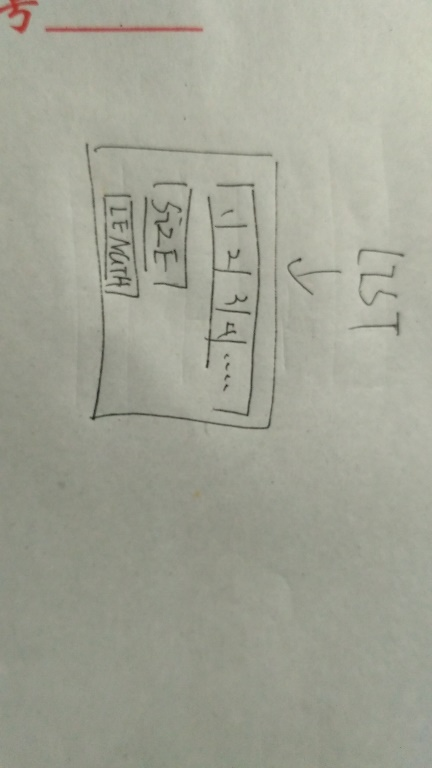 号
LIST
1 2 3 4 .....
SIZE
LENGTH